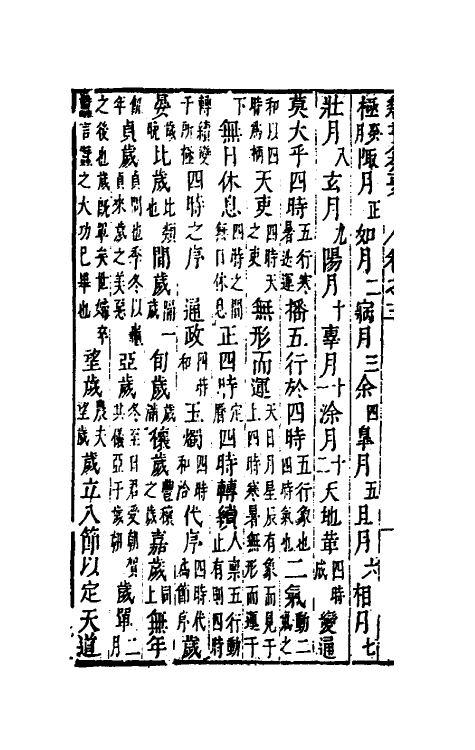 極癸月陬月正如月二病月三余四皐月五且月六相月七
壯月八玄月九陽月十辜月十一涂月十二天地革四時成變通
莫大乎四時五行寒暑迭運播五行於四時五行象也四時氣也二氣動二氣之
和以四時爲柄天吏四時天之吏無形而運天日月星辰有象而見于上四時寒暑無形而運于
下無日休息四時之間無日休息正四時定曆四時轉續人禀五行動止有則四時
轉續變于所極四時之序 通政四時和玉燭四時和洽代序四時代爲節序歲
晏歲晚比歲比類也間歲隔一歲旬歲歲滿穰歲豐穰之歲嘉歲同上無年
飢年貞歲貞問也季冬以貞來歲之美惡亞歲冬至日君受朝賀其儀亞于歲朝歲單二月
之後也歲既單矣世婦卒蠶言蠶之大功已畢也望歲農夫望歲歲立八節以定天道